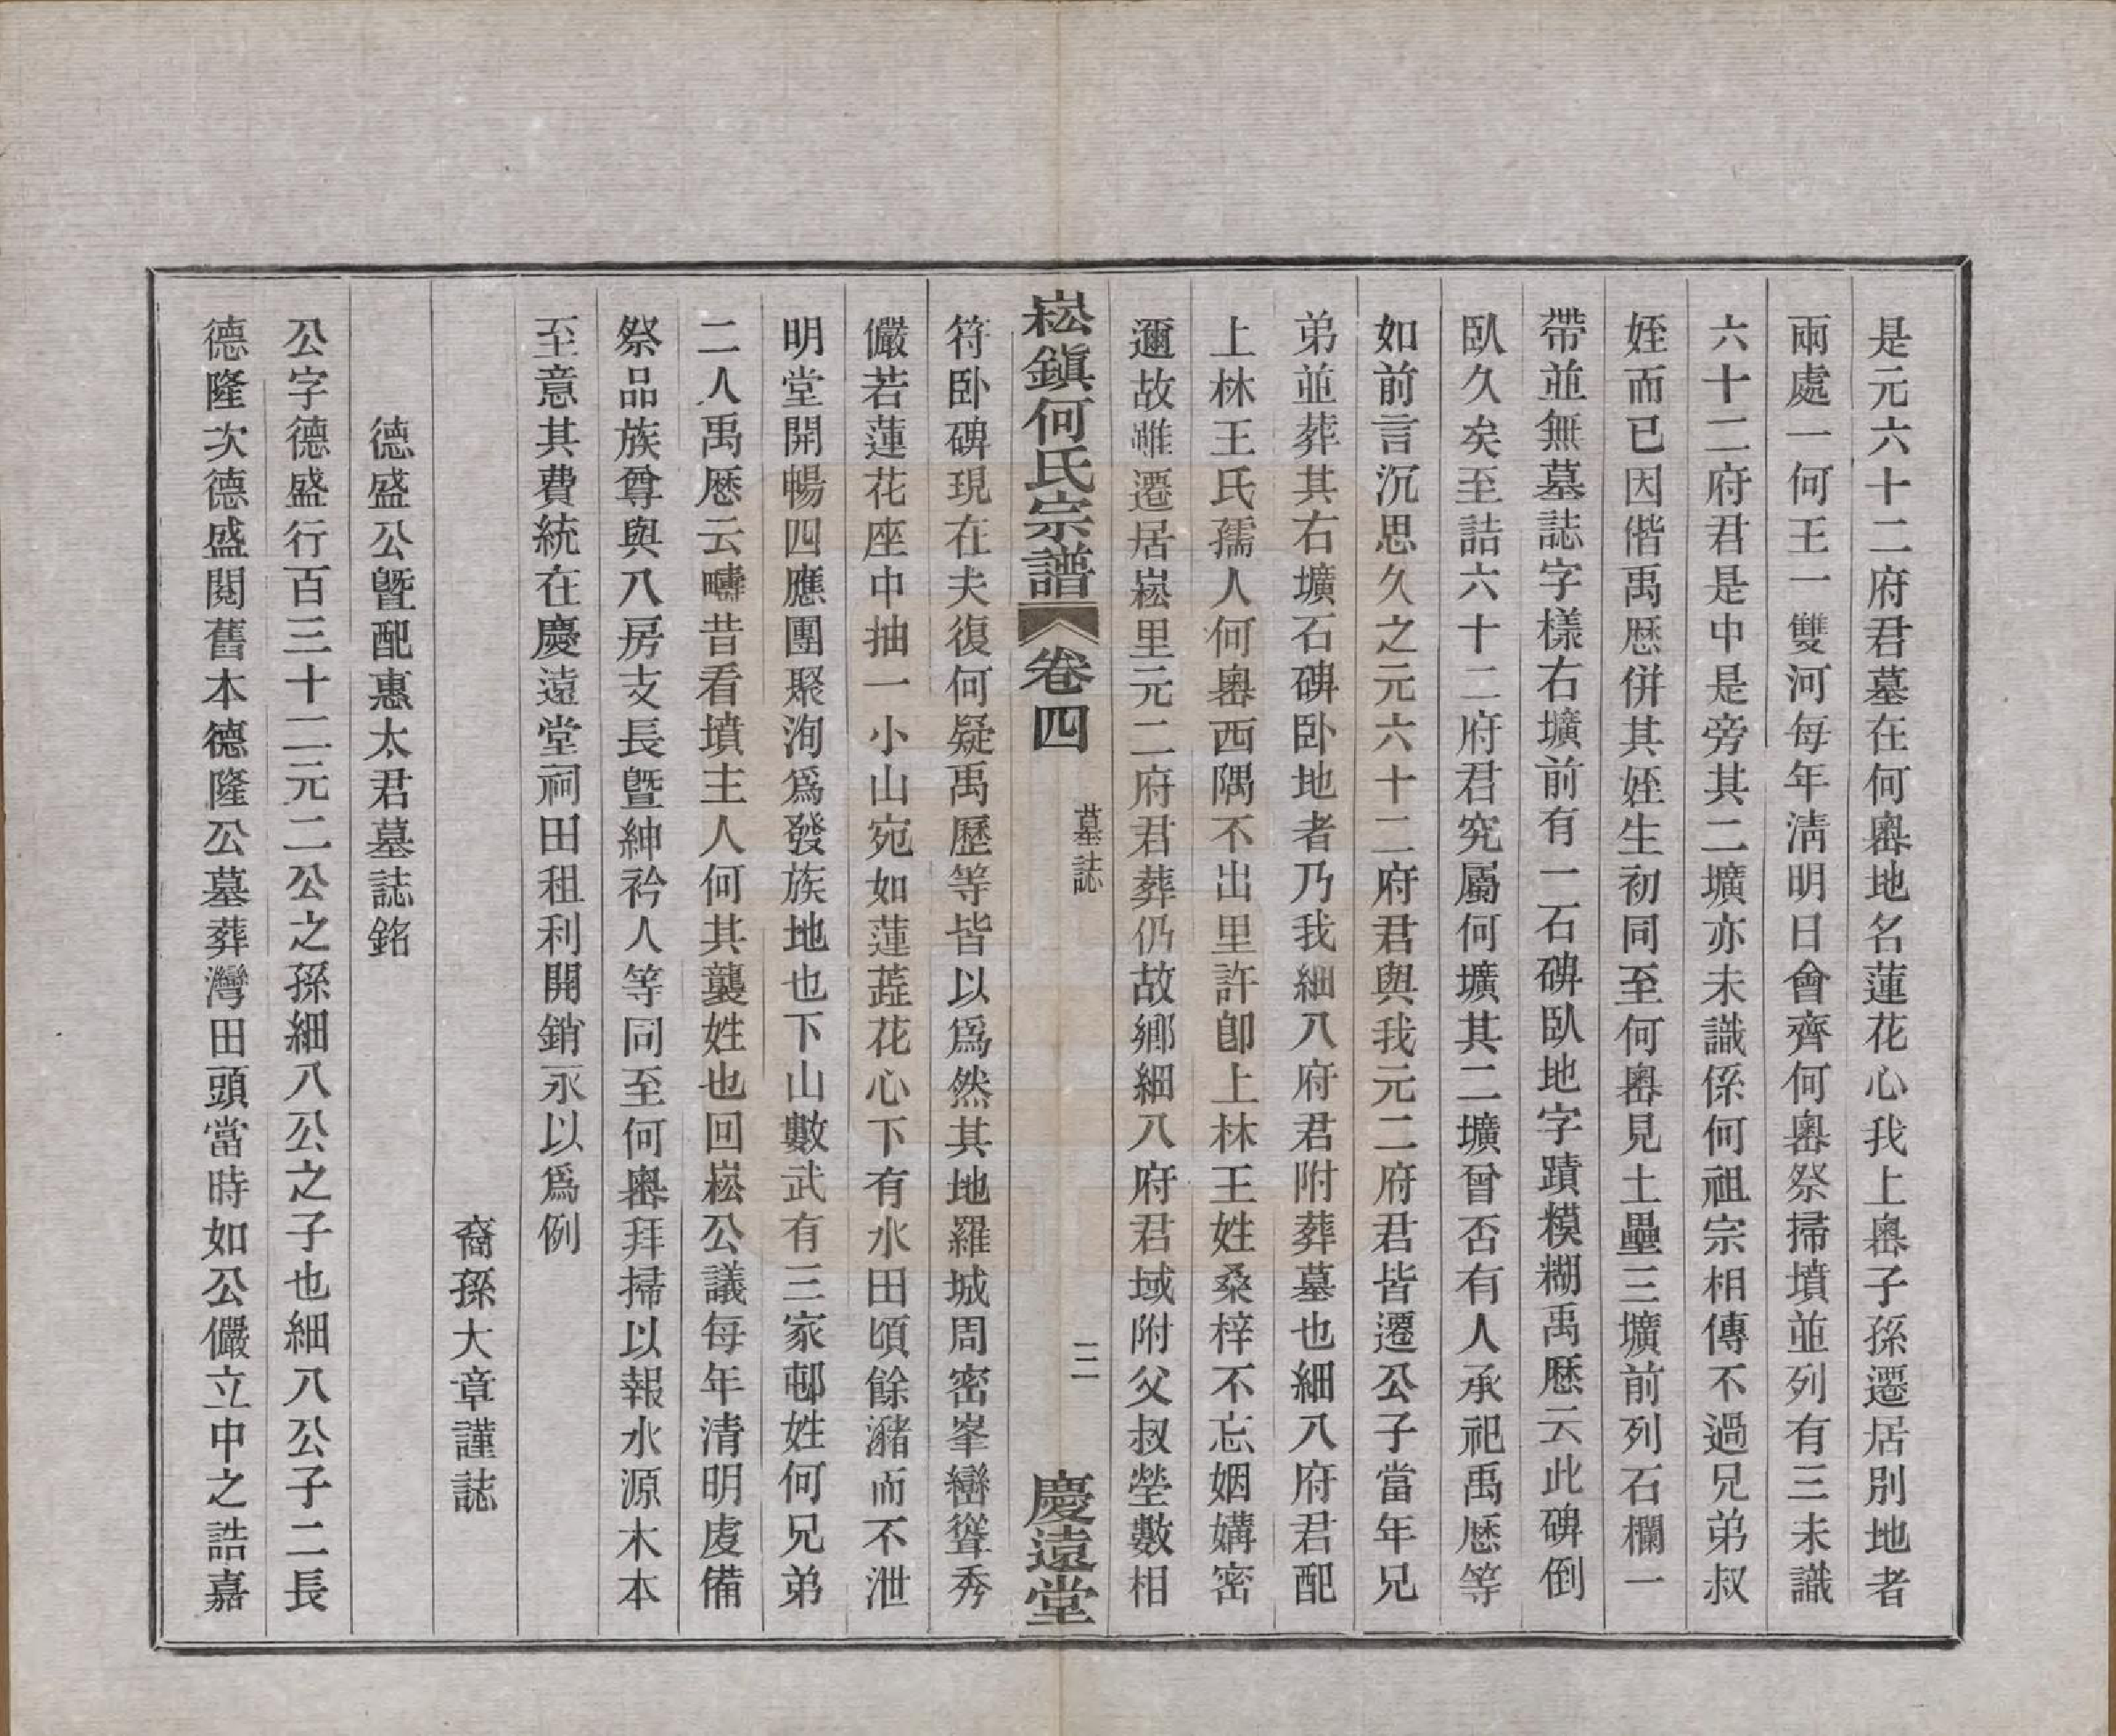 是元六十二府君墓在何奧地名蓮花心我上奧子孫遷居別地者
兩處一何王一雙河每年淸明日會齊何奧祭掃墳並列有三未識
六十二府君是中是旁其二壙亦未識係何祖宗相傳不過兄弟叔
姪而已因偕禹歷併其姪生初同至何奧見土壘三壙前列石欄一
帶並無墓誌字樣右壙前有一石碑臥地字蹟模糊禹歷云此碑倒
臥久矣至詰六十二府君究屬何壙其二壙曾否有人承祀禹歷等
如前言沉思久之元六十二府君與我元二府君皆遷公子當年兄
弟並葬其右壙石碑卧地者乃我細八府君附葬墓也細八府君配
上林王氏孺人何奧西隅不出里許卽上林王姓桑梓不忘姻媾密
邇故雖遷居崧里元二府君葬仍故鄉細八府君域附父叔塋數相
崧鎭何氏宗譜 卷四 墓誌 三 慶遠堂
符卧碑現在夫復何疑禹歷等皆以爲然其地羅城周密峯巒聳秀
儼若蓮花座中抽一小山宛如蓮蕋花心下有水田頃餘瀦而不泄
明堂開暢四應團聚洵爲發族地也下山數武有三家邨姓何兄弟
二人禹歷云疇昔看墳主人何其襲姓也回崧公議每年清明虔備
祭品族尊與八房支長暨紳衿人等同至何奧拜掃以報水源木本
至意其費統在慶遠堂祠田租利開銷永以爲例
裔孫大章謹誌
德盛公暨配惠太君墓誌銘
公字德盛行百三十二元二公之孫細八公之子也細八公子二長
德隆次德盛閱舊本德隆公墓葬灣田頭當時如公儼立中之誥嘉